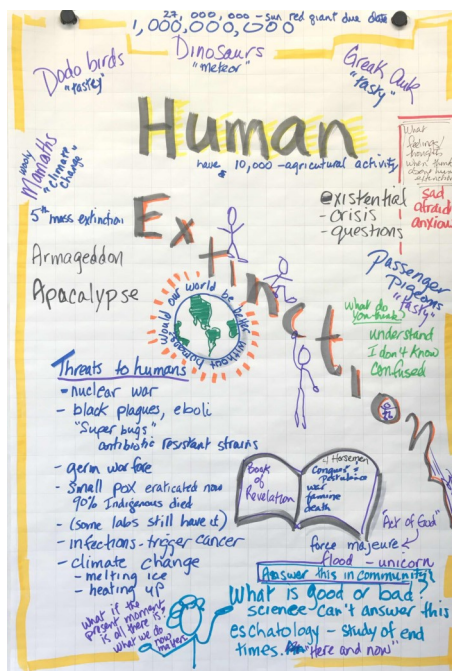 27,000,000 - sun red giant due date
1,000,000,000
Dodo birds
"tastey"
Dinosaurs
"meteor"
Great Auk
"tasty"
Woolly
Mammoths
"climate
change"
Human
have 10,000 - agricultural activity
What
feelings/
thoughts
when think
about human
extinction
sad
afraid
anxious
5th mass extinction
Armageddon
Apocalypse
Extinction
existential
- crisis
- questions
Passenger
pigeons
"tasty"
What do
you think?
understand
I don't know
confused
Would our world be better without humans?
Threats to humans
- nuclear war
- black plagues, eboli
"Super bugs"
antibiotic resistant strains
- germ warfare
- Small pox eraticated now
90% Indigenous died
- (some labs still have it)
- infections - trigger cancer
- climate change
- melting ice
- heating up
Book
of
Revelation
4 Horsemen
Conquer +
Pestulence
war
famine
death
"Act of God"
force majeure
flood - unicorn
Answer this in community
What is good or bad?
science can't answer this
eschatology - study of end
times. "Here and now"
What if the
present moment
is all there is?
What we do
now
matters